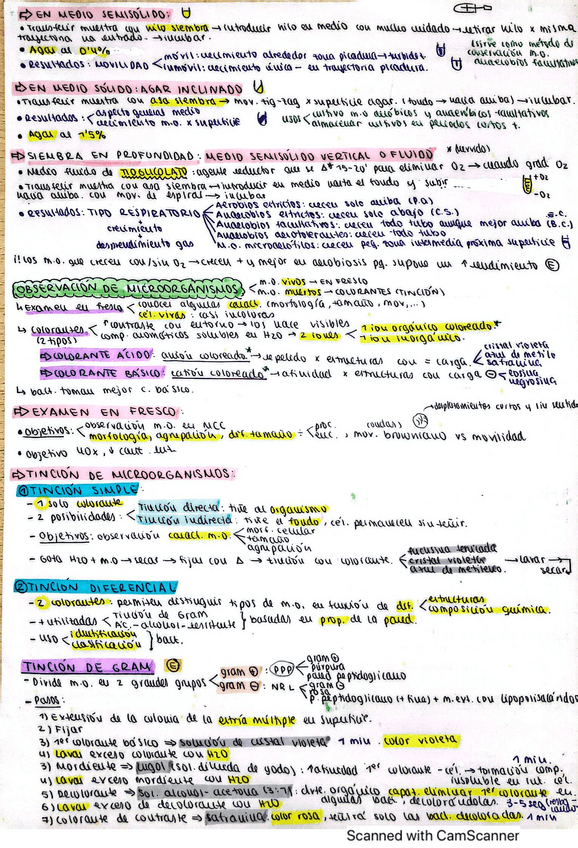 ⇒ EN MEDIO SEMISÓLIDO:
• Transferir muestra con hilo siembra → introducir hilo en medio con mucho cuidado → retirar hilo x misma
trayectoria na entrado. → incubar.
• Agar al 0'4%
sirve como método de
observación m.o.
anaerobios facultativos
• Resultados: MOVILIDAD
móvil: crecimiento alrededor zona picadura → turbidez
inmóvil: crecimiento única en trayectoria picadura.
⇒ EN MEDIO SÓLIDO: AGAR INCLINADO
• Transferir muestra con asa siembra → mov. zig-zag x superficie agar. (fondo → hacia arriba) → incubar.
• Resultados:
aspecto general medio
crecimiento m.o. x superficie
USOS
cultivo m.o aerobios y anaerobios facultativos
almacenar cultivos en periodos cortos t.
• Agar al 1'5%
⇒ SIEMBRA EN PROFUNDIDAD: MEDIO SEMISÓLIDO VERTICAL O FLUIDO
• Medio fluido de TIOGLICOLATO: agente reductor que se Δª 15-20' para eliminar O2 → cuando grad O2
+O2
-O2
• Transferir muestra con asa siembra → introducir en medio hasta el fondo y subir
hacia arriba con mov. de espiral → incubar
• RESULTADOS: TIPO RESPIRATORIO
crecimiento
↓
desprendimiento gas
Aerobios estrictos: crecen solo arriba (P.a)
Anaerobios estrictos: crecen solo abajo (C.S.)
Anaerobios facultativos: crecen todo tubo aunque mejor arriba (B.c.)
Anaerobios aerotolerantes: crecen todo tubo
M.o. microaerófilos: crecen peq. zona intermedia próxima superficie
!! los m.o. que crecen con/sin O2 → crecen + y mejor en aerobiosis pq. supone un ↑ rendimiento Ⓔ
OBSERVACIÓN DE MICROORGANISMOS
m.o. vivos → EN FRESCO
m.o. muertos → COLORANTES (TINCIÓN)
↳ examen en fresco
conocer algunas caract. (morfología, tamaño, mov,...)
cél. vivas: casi incoloras
↳ colorantes
(2 tipos)
↑ contraste con entorno → los hace visibles
comp. aromáticos solubles en H2O → 2 iones
1 ion orgánico coloreado*
1 ion inorgánico.
⇒ COLORANTE ÁCIDO: anión coloreado* → repelido x estructuras con = carga.
cristal violeta
azul de metilo
safranina
⇒ COLORANTE BÁSICO: catión coloreado* → afinidad x estructuras con carga ⊖
eosina
negrosina
↳ bact. toman mejor c. básico.
⇒ EXAMEN EN FRESCO:
desplazamientos cortos y sin sentido
• Objetivos:
observación m.o. en MCC
morfología, agrupación, dif. tamaño
proc.
euc.
, mov. browniano vs movilidad
• objetivo 40x, ↓ cant. luz
⇒ TINCIÓN DE MICROORGANISMOS:
① TINCIÓN SIMPLE:
- 1 solo colorante
- 2 posibilidades:
Tinción directa: tiñe al organismo
Tinción indirecta: tiñe el fondo, cél. permanecen sin teñir.
- Objetivos: observación caract. m.o.
morf. celular
tamaño
agrupación
- Gota H2O + m.o → secar → fijar con Δ → tinción con colorante.
fucsina fenicada
cristal violeta
azul de metileno.
→ lavar →
secar
② TINCIÓN DIFERENCIAL
- 2 colorantes: permiten distinguir tipos de m.o. en función de dif.
estructuras
composición química.
- + utilizadas
Tinción de Gram
Ác.-alcohol-resistente
basadas en prop. de la pared.
- uso
identificación
clasificación
bact.
TINCIÓN DE GRAM Ⓔ
- Divide m.o. en 2 grandes grupos
gram ⊕: PPP
gram ⊕
púrpura
pared peptidoglicano
gram ⊖: NRL
gram ⊖
rosa
p. peptidoglicano (+ fina) + m.ext. con lipopolisacáridos
- Pasos:
1) Extensión de la colonia de la estría múltiple en superficie.
2) Fijar
3) 1er colorante básico ⇒ solución de cristal violeta 1 min. color violeta
4) Lavar exceso colorante con H2O
3) Mordiente ⇒ lugol (sol. diluida de yodo): ↑ afinidad 1er colorante - cél. → formación comp.
1 min.
insoluble en int. cél.
4) Lavar exceso mordiente con H2O
5) Decolorante ⇒ sol. alcohol-acetona (3:7): dvte. orgánico capaz eliminar 1er colorante en
algunas bact., decolorándolas. 3-5 seg
6) Lavar exceso de decolorante con H2O
7) Colorante de contraste ⇒ safranina color rosa, teñirá solo las bact. decoloradas. 1 min
Scanned with CamScanner